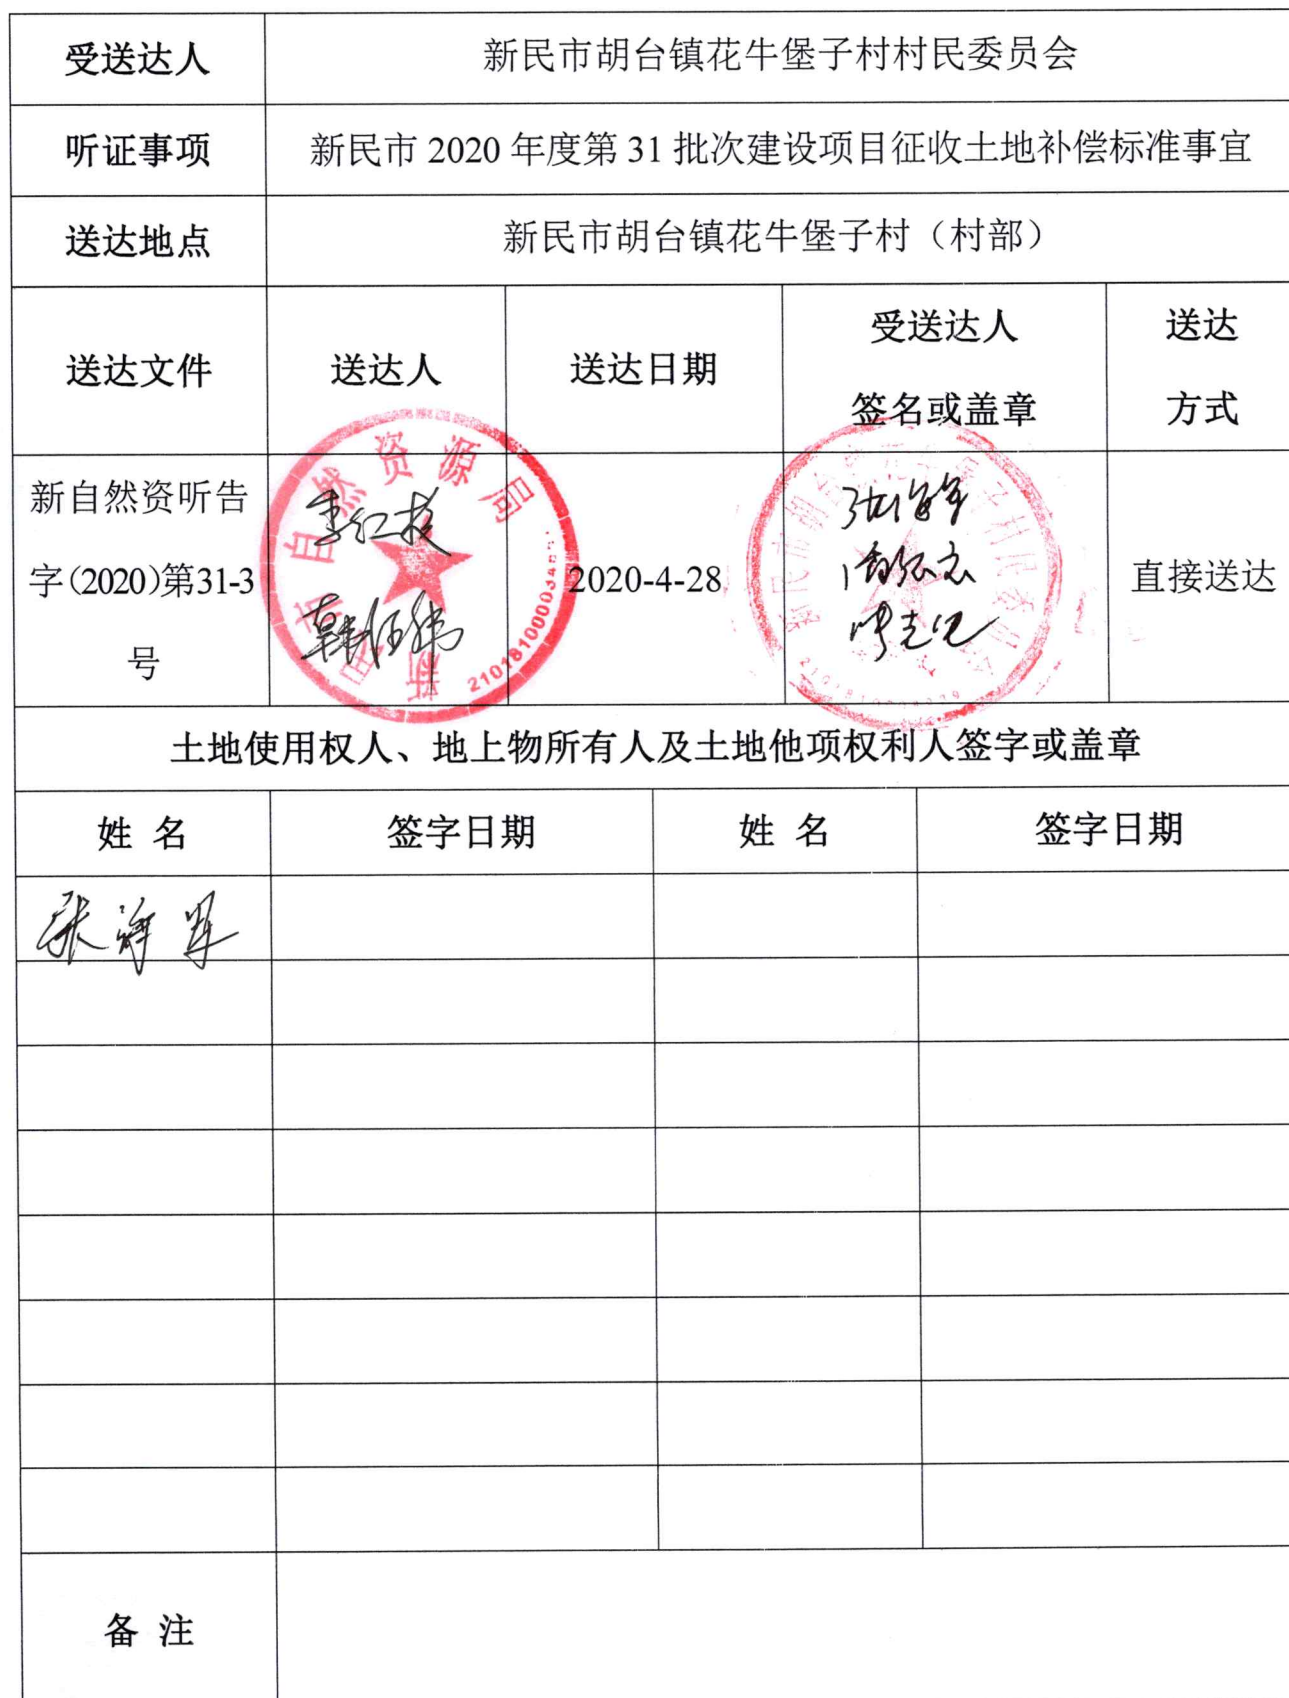 受送达人
新民市胡台镇花牛堡子村村民委员会
听证事项
新民市 2020 年度第 31 批次建设项目征收土地补偿标准事宜
送达地点
新民市胡台镇花牛堡子村（村部）
送达文件
送达人
送达日期
受送达人
签名或盖章
送达
方式
新自然资听告
字(2020)第31-3
号
新民市自然资源局
2020-4-28
直接送达
土地使用权人、地上物所有人及土地他项权利人签字或盖章
姓 名
签字日期
姓 名
签字日期
备 注